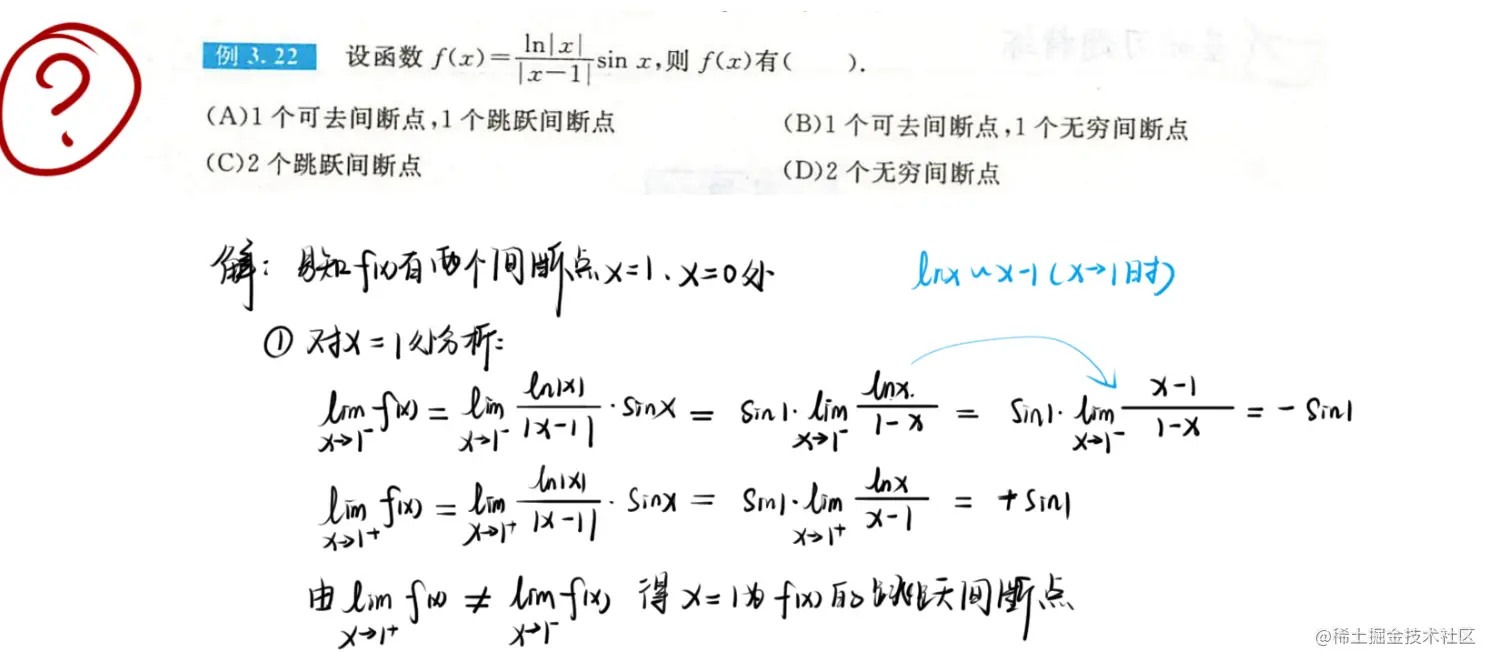 ?
例 3.22 设函数 f(x)=\frac{ln|x|}{|x-1|}sin x,则 f(x)有( ).
(A)1个可去间断点,1个跳跃间断点 (B)1个可去间断点,1个无穷间断点
(C)2个跳跃间断点 (D)2个无穷间断点
解: 易知f(x)有两个间断点x=1、x=0处 lnx~x-1(x→1时)
① 对x=1处分析:
\lim_{x→1^-} f(x) = \lim_{x→1^-} \frac{ln|x|}{|x-1|}·sinx = sin1·\lim_{x→1^-} \frac{lnx}{1-x} = sin1·\lim_{x→1^-} \frac{x-1}{1-x} = -sin1
\lim_{x→1^+} f(x) = \lim_{x→1^+} \frac{ln|x|}{|x-1|}·sinx = sin1·\lim_{x→1^+} \frac{lnx}{x-1} = +sin1
由 \lim_{x→1^+} f(x) ≠ \lim_{x→1^-} f(x) 得 x=1为f(x)的跳跃间断点
@稀土掘金技术社区